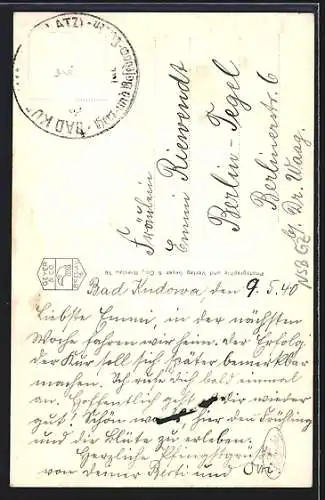 (GLATZ)
BAD KU
Fräulein
Emmi Riewendt
Berlin-Tegel
Berlinerstr. 6
b/ Dr. Waag.
Photographie und Verlag Geyer & Co., Breslau
Bad Kudowa, den 9.5.40
Liebste Emmi, in der nächsten
Woche fahren wir heim. der Erfolg
der Kur soll sich später bemerkbar
machen. Ich rufe dich bald einmal
an. Hoffentlich geht es dir wieder
gut! Schön hier den Frühling
und die Blüte zu erleben.
Herzliche Pfingstgrüße
von deiner und